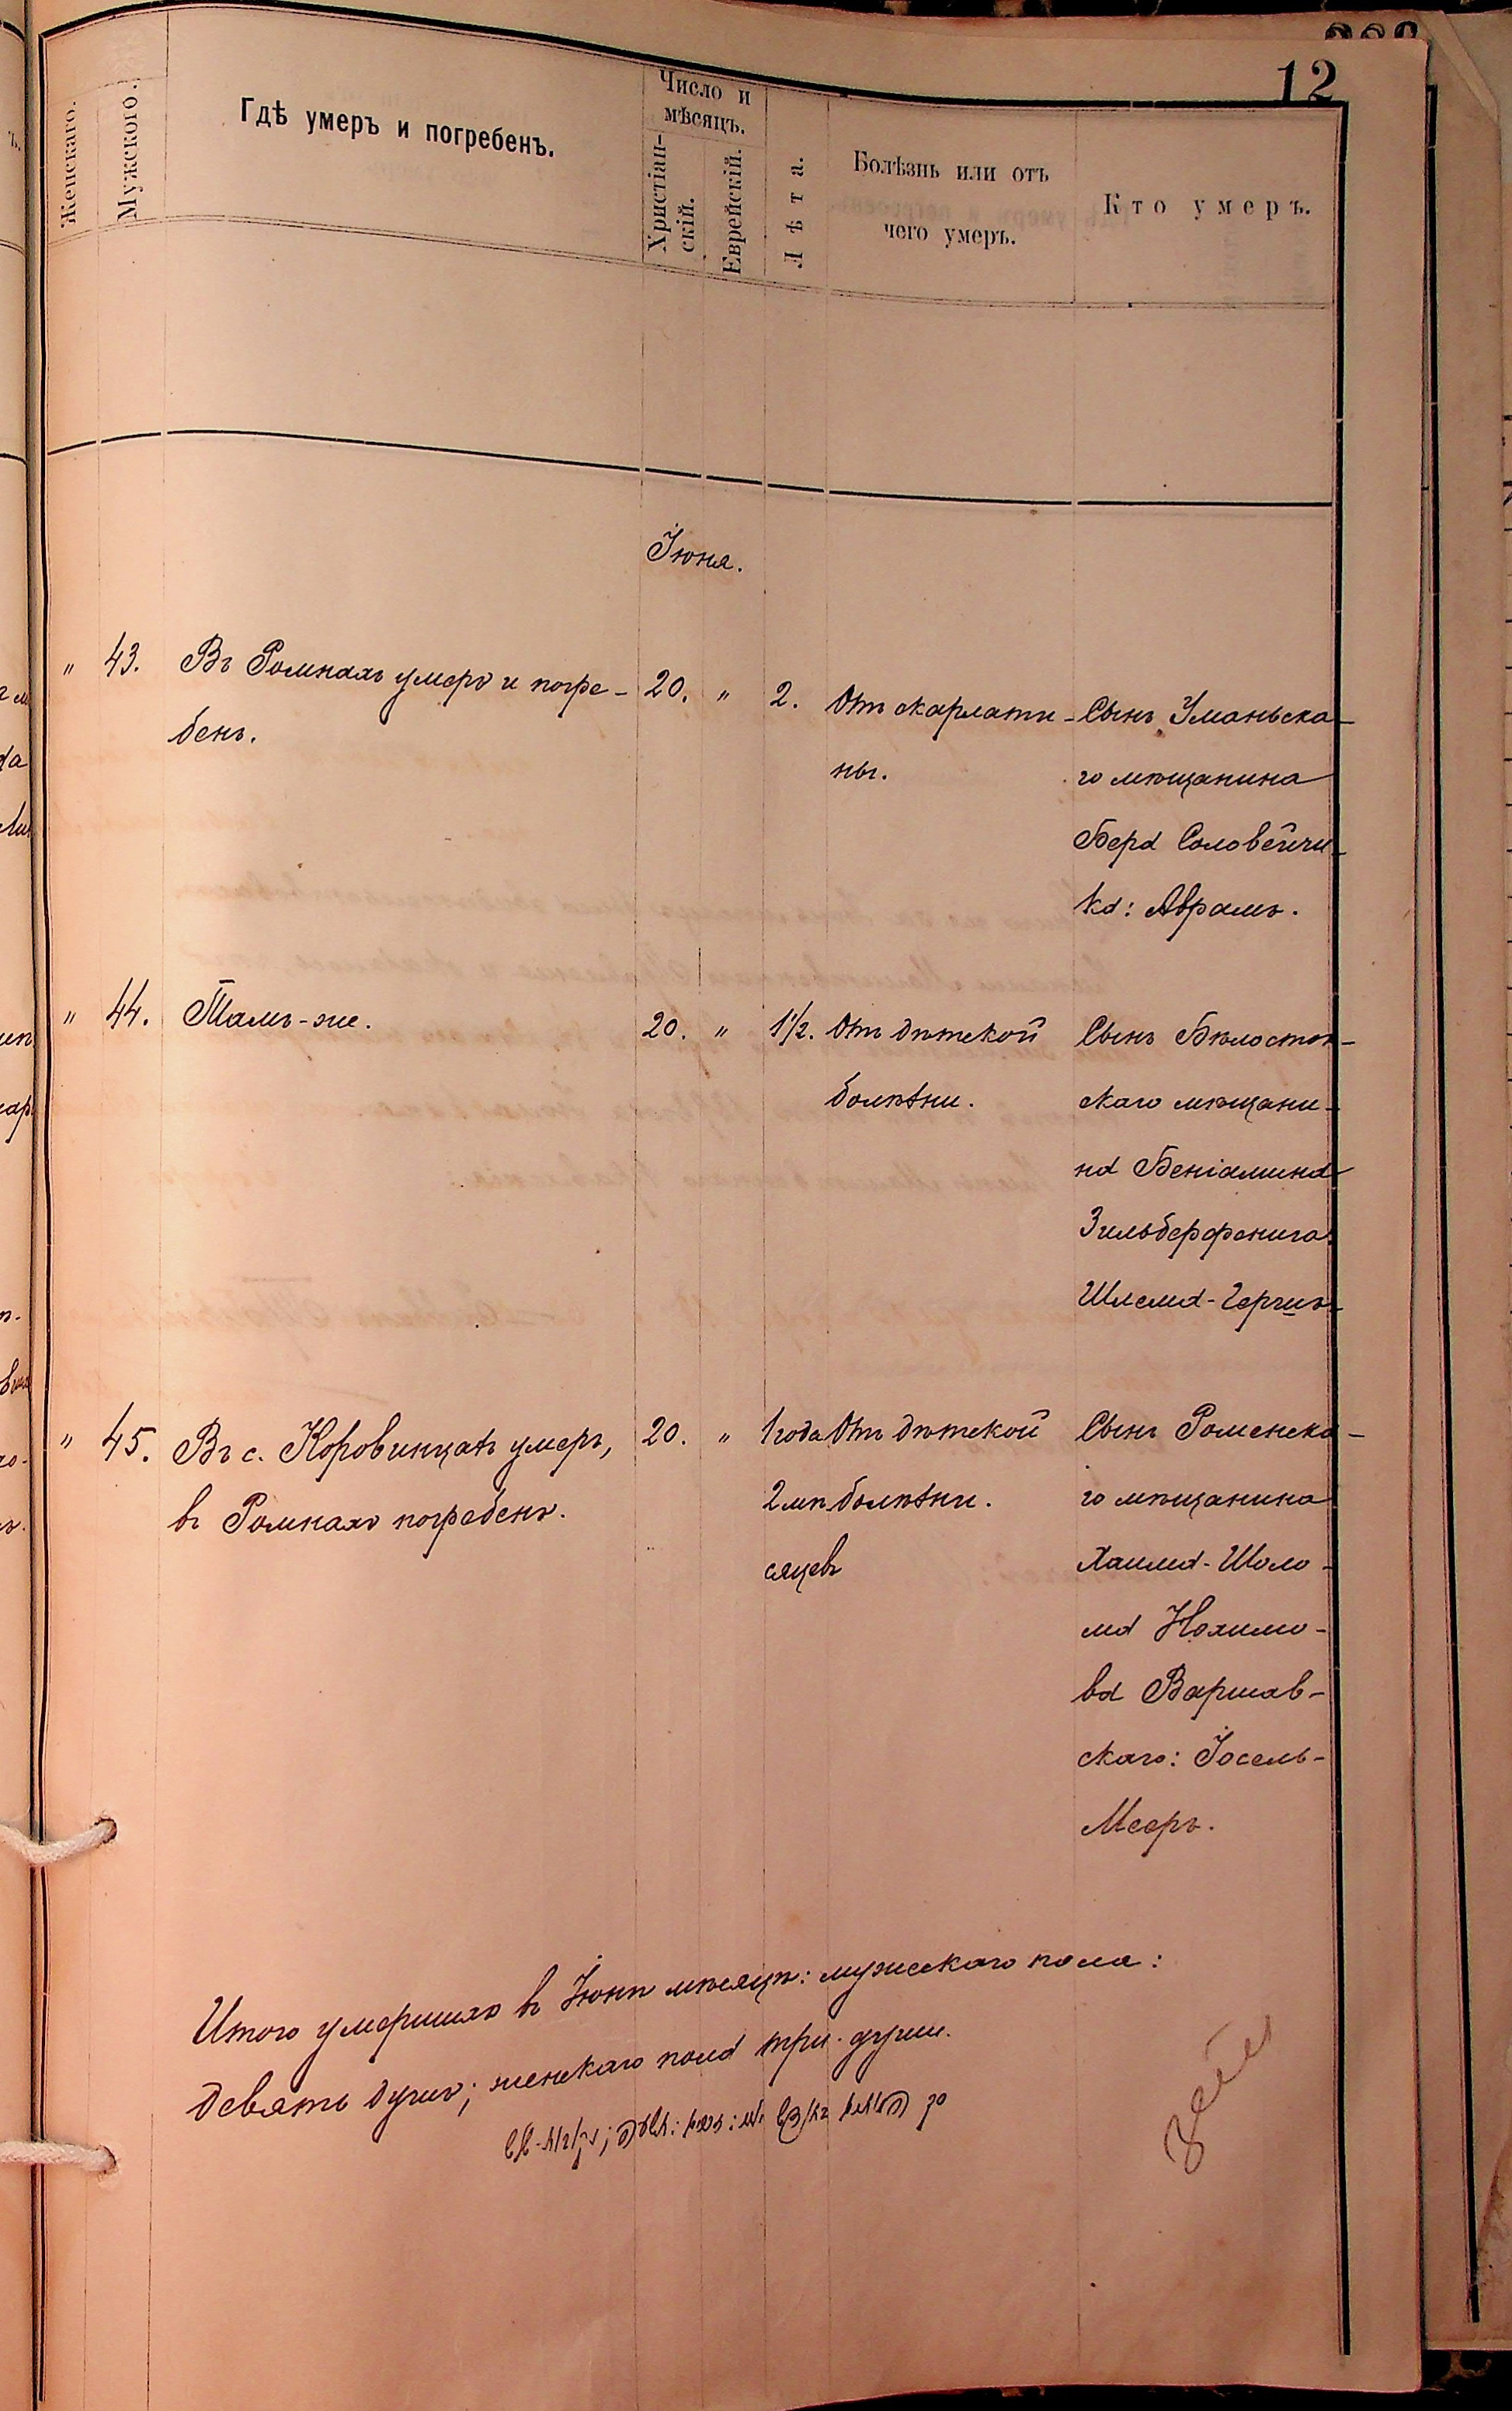 12
Женскаго.
Мужскаго.
Гдѣ умеръ и погребенъ.
Число и
мѣсяцъ.
Христіан-
скій.
Еврейскій.
Лѣта.
Болѣзнь или отъ
чего умеръ.
Кто умеръ.
Іюня.
" 43. Въ Ромнахъ умеръ и погре- 20. " 2. Отъ скарлати- Сынъ Уманьска-
бенъ. ны. го мѣщанина
Бера Соловейчи-
ка: Аврамъ.
" 44. Тамъ-же. 20. " 1½. Отъ дѣтской Сынъ Бѣлосток-
болѣзни. скаго мѣщани-
на Беніамина
Зильберфенига:
Шлема-Гершъ
" 45. Въ с. Коровинцахъ умеръ, 20. " 1 года Отъ дѣтской Сынъ Роменска-
въ Ромнахъ погребенъ. 2 мѣ болѣзни. го мѣщанина
сяцевъ Хаима-Шоло-
ма Нохимо-
ва Варшав-
скаго: Іосель-
Мееръ.
Итого умершихъ въ Іюнѣ мѣсяцѣ: мужескаго пола:
девять душъ; женскаго пола три души.